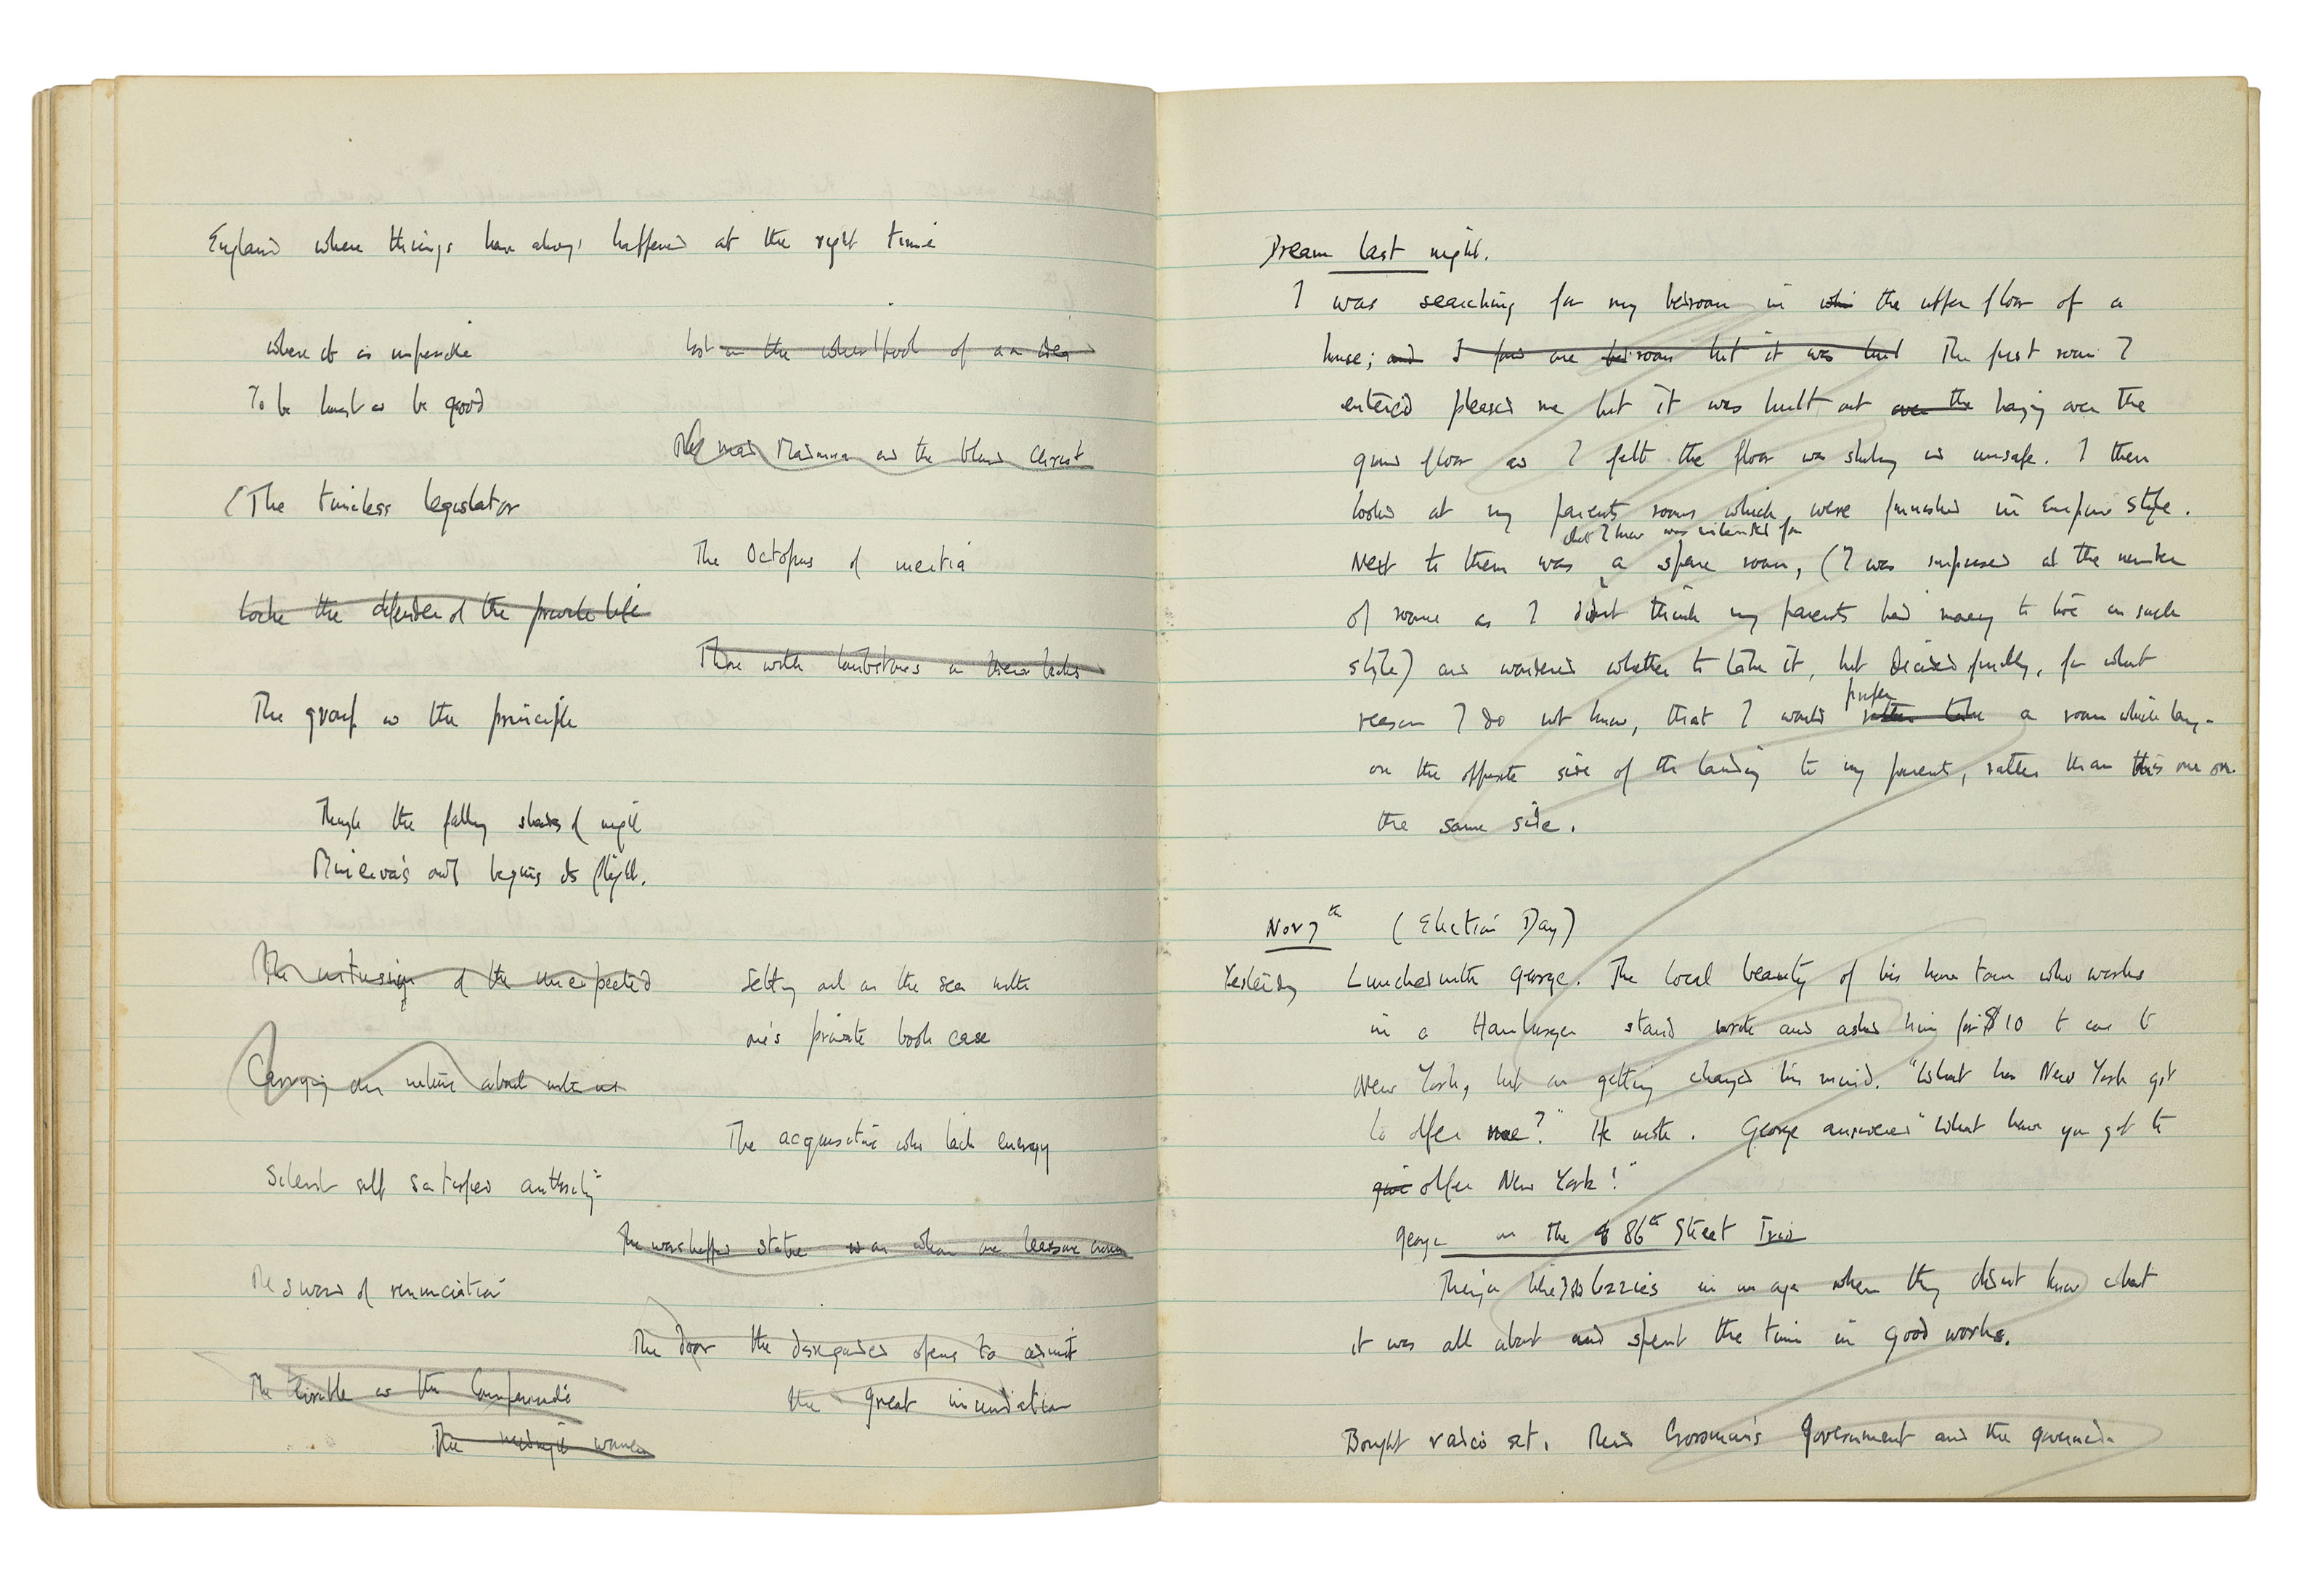 England where things have always happened at the right time
where it is impossible
To be honest or be good
lost in the whirlpool of an idea
The mad Madonna and the blind Christ
(The timeless legislator
The Octopus of inertia
Locke the defender of the private life
Those with tombstones on their backs
The group or the principle
Through the falling shades of night
Minerva's owl begins its flight.
The intrusion of the unexpected
Setting out on the sea with
one's private book case
Carrying our nature about with us
The acquisitive who lack energy
Silent self satisfied authority
The worshipped statue on whom one
The sword of renunciation
The door the disguised opens to admit
the great inundation
The terrible or the
The midnight women
Dream last night.
I was searching for my bedroom in the upper floor of a
house; and I found one bedroom but it was The first room I
entered pleased me but it was built out over the hanging over the
ground floor and I felt the floor was shaking and unsafe. I then
looked at my parents rooms which were furnished in Empire Style.
that I knew was intended for
Next to them was a spare room, (I was surprised at the number
of rooms as I didn't think my parents had money to live in such
style) and wondered whether to take it, but decided finally, for what
prefer
reason I do not know, that I would rather take a room which lay
on the opposite side of the landing to my parents, rather than this one on
the same side.
Nov 7th (Election Day)
Yesterday Lunched with George. The local beauty of his home town who works
in a Hamburger stand wrote and asked him for $10 to come to
New York, but on getting changed his mind. "What has New York got
to offer me?" He wrote. George answered "What have you got to
give offer New York!"
George on the 86th Street Trio
They're like in an age when they didn't know what
it was all about and spent the time in good works.
Bought radio set. Read Crossman's Government and the governed.